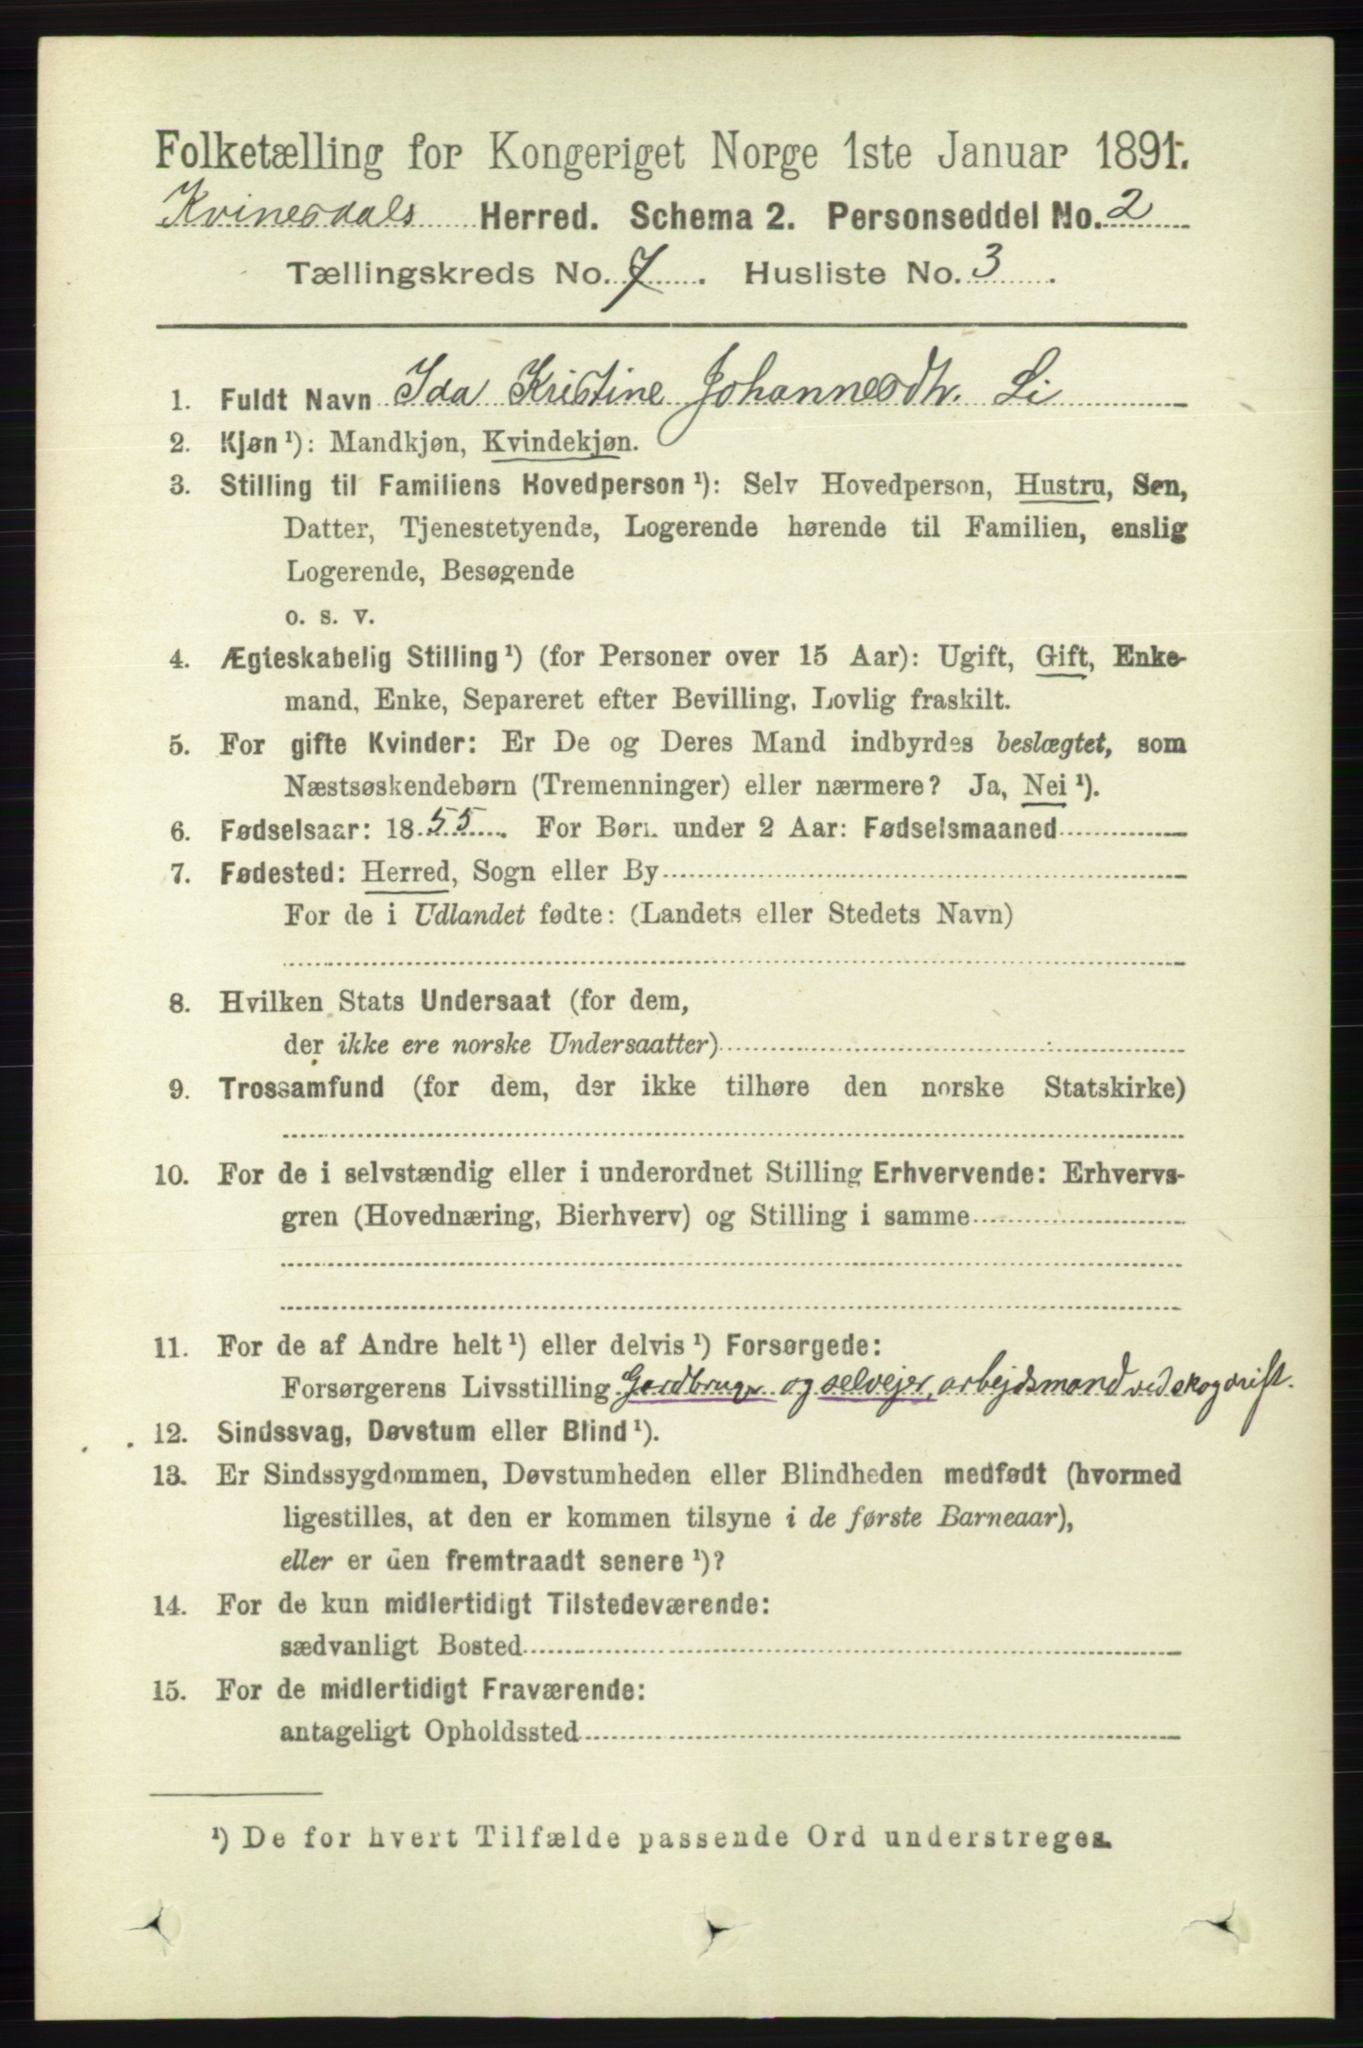 Folketælling for Kongeriget Norge 1ste Januar 1891.
Kvinesdals Herred. Schema 2. Personseddel No. 2
Tællingskreds No. 7. Husliste No. 3.
1. Fuldt Navn Ida Kristine Johannesdtr. Li
2. Kjøn ¹): Mandkjøn, Kvindekjøn.
3. Stilling til Familiens Hovedperson ¹): Selv Hovedperson, Hustru, Søn,
Datter, Tjenestetyende, Logerende hørende til Familien, enslig
Logerende, Besøgende
o. s. v.
4. Ægteskabelig Stilling ¹) (for Personer over 15 Aar): Ugift, Gift, Enke-
mand, Enke, Separeret efter Bevilling, Lovlig fraskilt.
5. For gifte Kvinder: Er De og Deres Mand indbyrdes beslægtet, som
Næstsøskendebørn (Tremenninger) eller nærmere? Ja, Nei ¹).
6. Fødselsaar: 1855. For Børn under 2 Aar: Fødselsmaaned
7. Fødested: Herred, Sogn eller By
For de i Udlandet fødte: (Landets eller Stedets Navn)
8. Hvilken Stats Undersaat (for dem,
der ikke ere norske Undersaatter)
9. Trossamfund (for dem, der ikke tilhøre den norske Statskirke)
10. For de i selvstændig eller i underordnet Stilling Erhvervende: Erhvervs-
gren (Hovednæring, Bierhverv) og Stilling i samme
11. For de af Andre helt ¹) eller delvis ¹) Forsørgede:
Forsørgerens Livsstilling Gardbruger og selvejer, arbejdsmand ved skogdrift.
12. Sindssvag, Døvstum eller Blind ¹).
13. Er Sindssygdommen, Døvstumheden eller Blindheden medfødt (hvormed
ligestilles, at den er kommen tilsyne i de første Barneaar),
eller er den fremtraadt senere ¹)?
14. For de kun midlertidigt Tilstedeværende:
sædvanligt Bosted
15. For de midlertidigt Fraværende:
antageligt Opholdssted
¹) De for hvert Tilfælde passende Ord understreges.